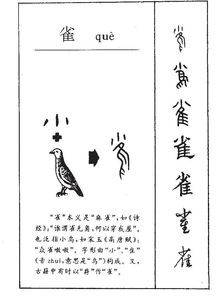 雀 què
小
"雀"本义是"麻雀",如《诗
经》:"谁谓雀无角,何以穿我屋"。
也泛指小鸟,如宋玉《高唐赋》:
"众雀嗷嗷"。字形由"小"、"隹"
(音zhuī,意思是"鸟")构成。又,
古籍中有时以"爵"作"雀"。
雀
雀